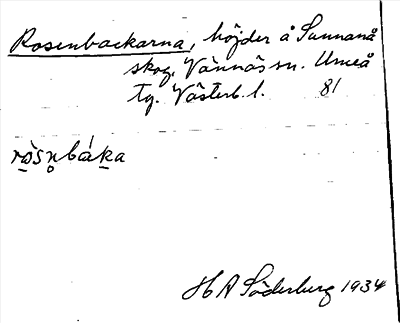 Rosenbackarna, höjder å Sunnanå
skog. Vännäs sn. Umeå
tg. Västerb. l. 81
ròsn̥báka
H A Söderberg 1934